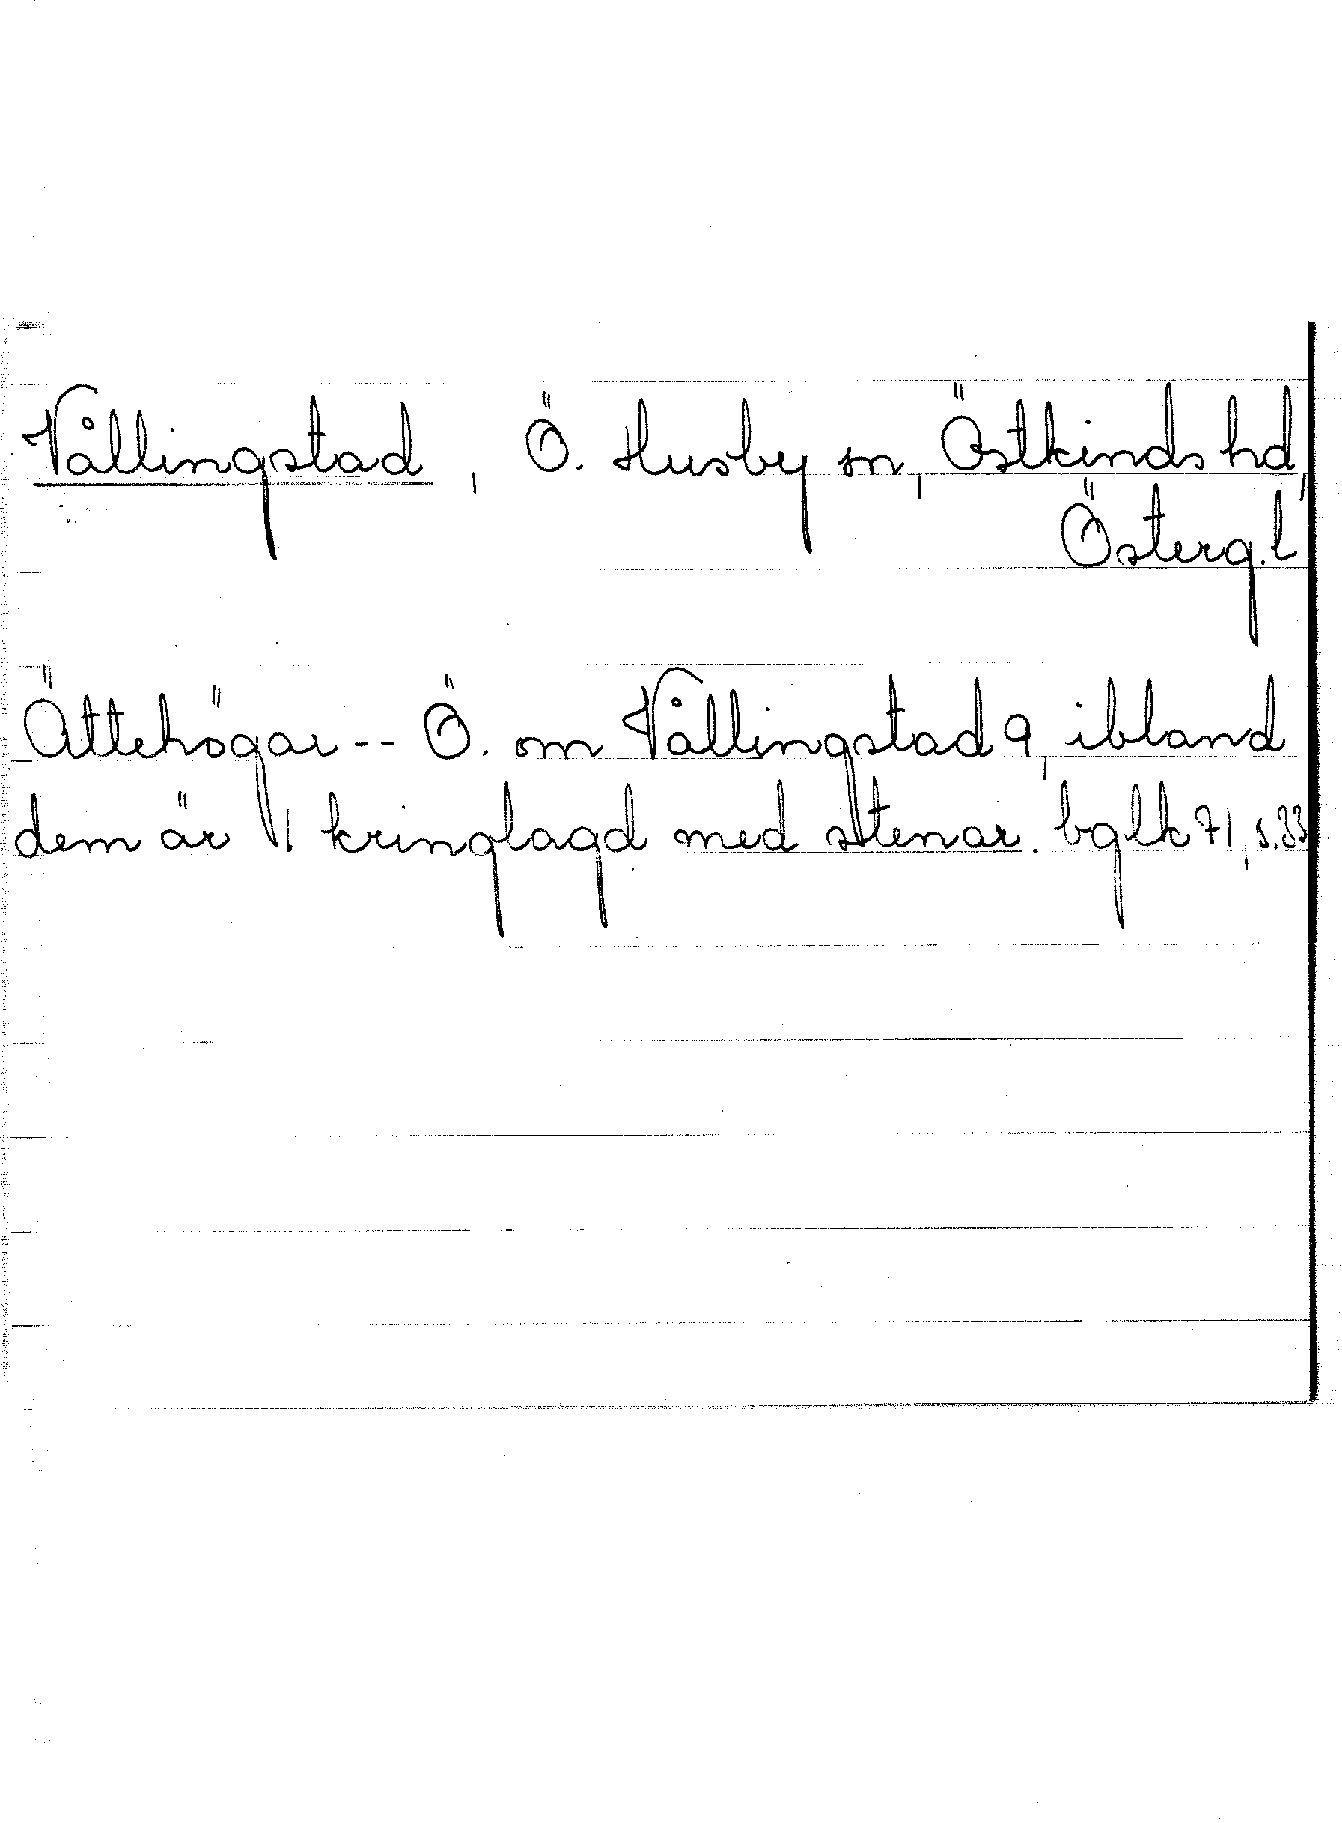 Vållingstad, Ö. Husby sn, Östkinds hd,
Österg. l
Ättehögar -- Ö. om Vållingstad 9, ibland
dem är 1 kringlagd med stenar. bglk 71, s. 33